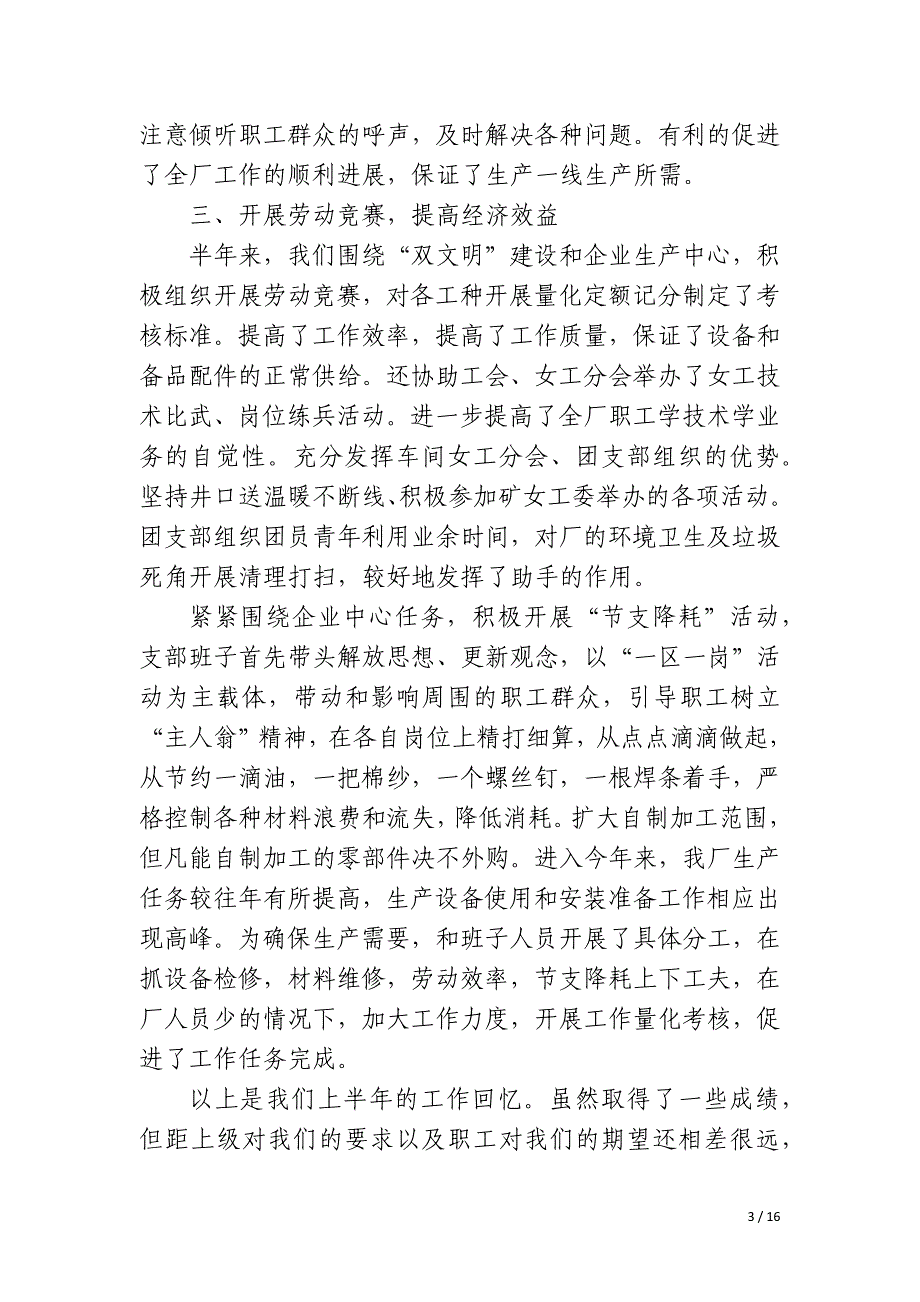 注意倾听职工群众的呼声，及时解决各种问题。有利的促进
了全厂工作的顺利进展，保证了生产一线生产所需。
三、开展劳动竞赛，提高经济效益
半年来，我们围绕“双文明”建设和企业生产中心，积
极组织开展劳动竞赛，对各工种开展量化定额记分制定了考
核标准。提高了工作效率，提高了工作质量，保证了设备和
备品配件的正常供给。还协助工会、女工分会举办了女工技
术比武、岗位练兵活动。进一步提高了全厂职工学技术学业
务的自觉性。充分发挥车间女工分会、团支部组织的优势。
坚持井口送温暖不断线、积极参加矿女工委举办的各项活动。
团支部组织团员青年利用业余时间，对厂的环境卫生及垃圾
死角开展清理打扫，较好地发挥了助手的作用。
紧紧围绕企业中心任务，积极开展“节支降耗”活动，
支部班子首先带头解放思想、更新观念，以“一区一岗”活
动为主载体，带动和影响周围的职工群众，引导职工树立
“主人翁”精神，在各自岗位上精打细算，从点点滴滴做起，
从节约一滴油，一把棉纱，一个螺丝钉，一根焊条着手，严
格控制各种材料浪费和流失，降低消耗。扩大自制加工范围，
但凡能自制加工的零部件决不外购。进入今年来，我厂生产
任务较往年有所提高，生产设备使用和安装准备工作相应出
现高峰。为确保生产需要，和班子人员开展了具体分工，在
抓设备检修，材料维修，劳动效率，节支降耗上下工夫，在
厂人员少的情况下，加大工作力度，开展工作量化考核，促
进了工作任务完成。
以上是我们上半年的工作回忆。虽然取得了一些成绩，
但距上级对我们的要求以及职工对我们的期望还相差很远，
3 / 16